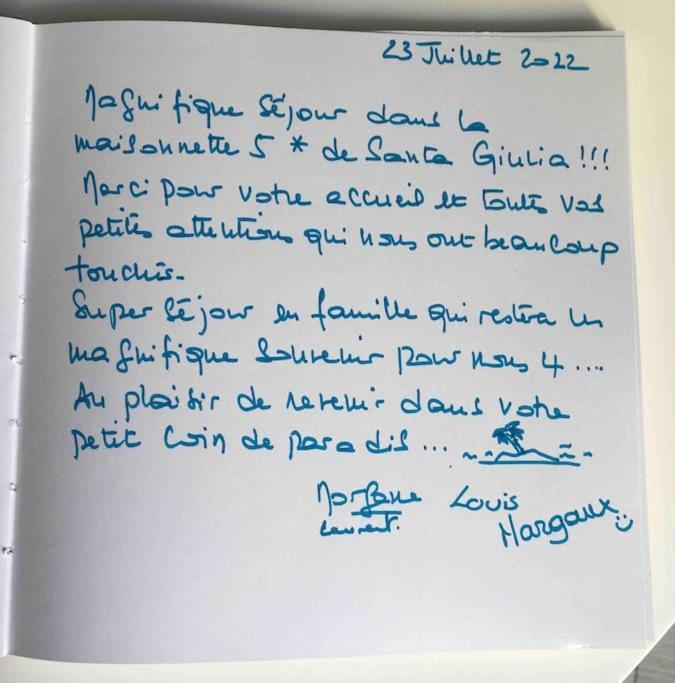 23 Juillet 2022
Magnifique séjour dans la
maisonnette 5 * de Santa Giulia !!!
Merci pour votre accueil et toutes vos
petites attentions qui nous ont beaucoup
touchés.
Super séjour en famille qui restera un
magnifique souvenir pour nous 4 ....
Au plaisir de revenir dans votre
petit coin de paradis ...
Morgane Louis
Laurent. Margaux